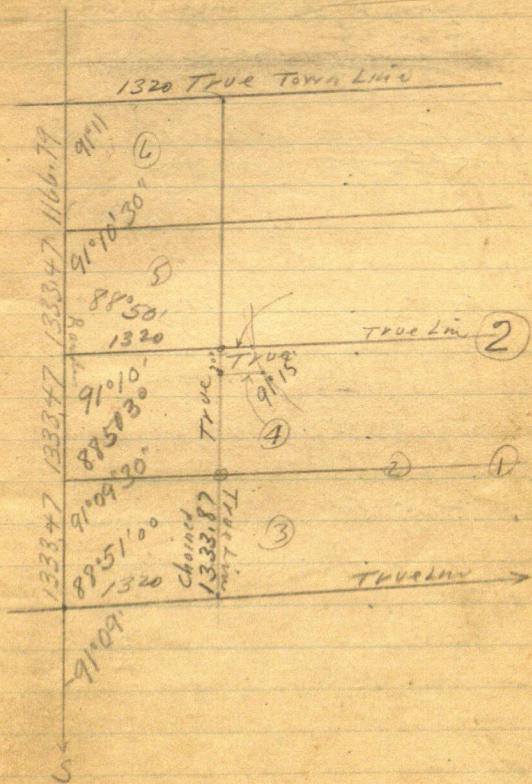 1320 True Town Line
1166.79
91°11
6
91°10'30"
1333.47
5
88°50'
1320
True Lin
2
True
91°15
91°10'
1333.47
88 50 30
True
4
91°09'30"
2
1
1333.47
88°51'00
1320
Chained
1333.87
True Lin
3
True Lin
91°09'
S